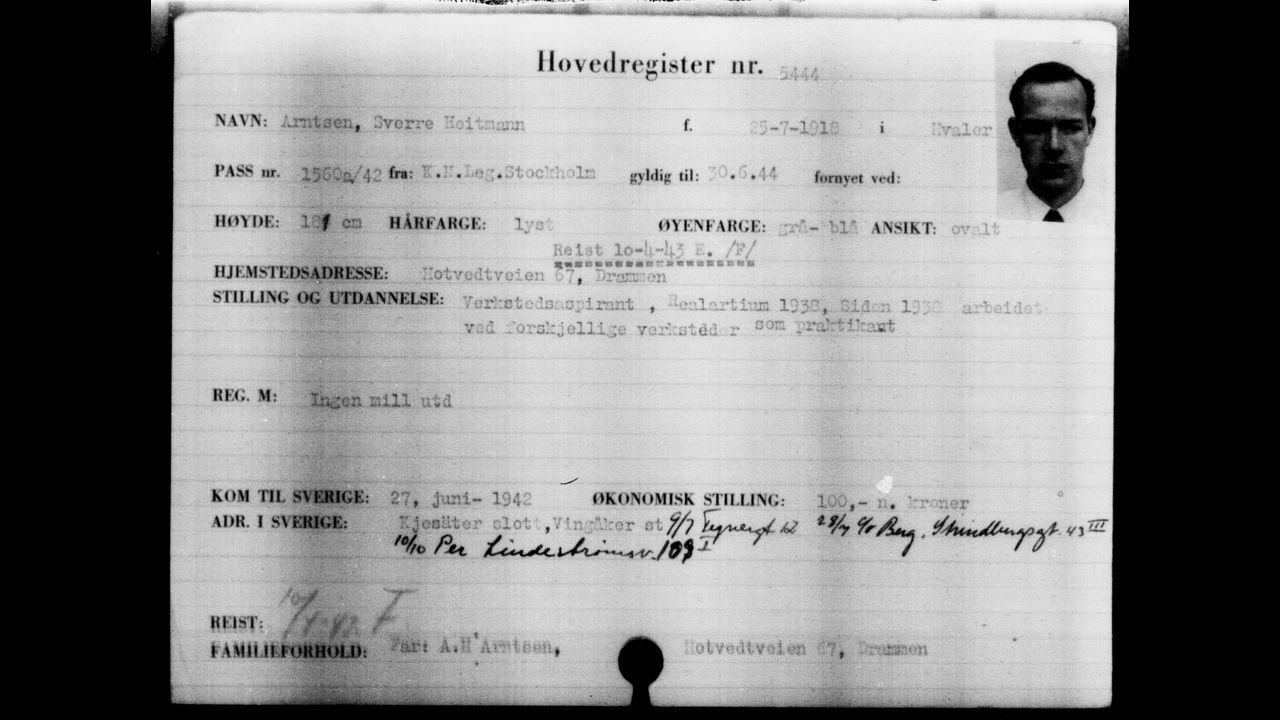 Hovedregister nr. 5444
NAVN: Arntsen, Sverre Heitmann f. 25-7-1918 i Hvaler
PASS nr. 1560a/42 fra: K.N.Leg.Stockholm gyldig til: 30.6.44 fornyet ved:
HØYDE: 181 cm HÅRFARGE: lyst ØYENFARGE: grå- blå ANSIKT: ovalt
Reist 10-4-43 E. /F/
HJEMSTEDSADRESSE: Hotvedtveien 67, Drammen
STILLING OG UTDANNELSE: Verkstedsaspirant , Realartium 1938, Siden 1938 arbeidet
ved forskjellige verksteder som praktikant
REG. M: Ingen mill utd
KOM TIL SVERIGE: 27, juni- 1942 ØKONOMISK STILLING: 100,- n. kroner
ADR. I SVERIGE: Kjesäter slott,Vingåker st 9/7 Tegnergt 28/7 c/o Berg. Strindbergsgt. 43 III
10/10 Per Lindeströmsv. 109 I
REIST: 10/4-43 F
FAMILIEFORHOLD: Far: A.H Arntsen, Hotvedtveien 67, Drammen